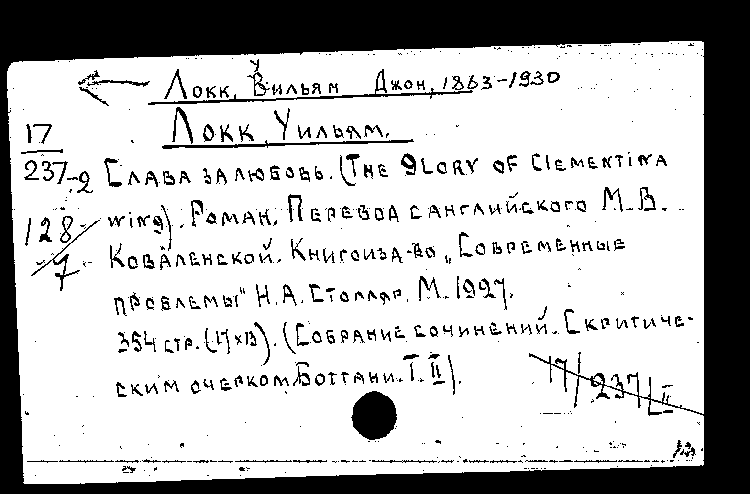 Локк, Вильям Джон, 1863-1930
У
Локк, Уильям.
17
237-2
Слава за любовь. (The Glory of Clementina
128
7
wing). Роман. Перевод с английского М. В.
Коваленской. Книгоизд-во „Современные
проблемы" Н. А. Столляр. М. 1927.
354 стр. (17×13). (Собрание сочинений. С критиче-
ским очерком Боттани. Т. II).
17/237/II